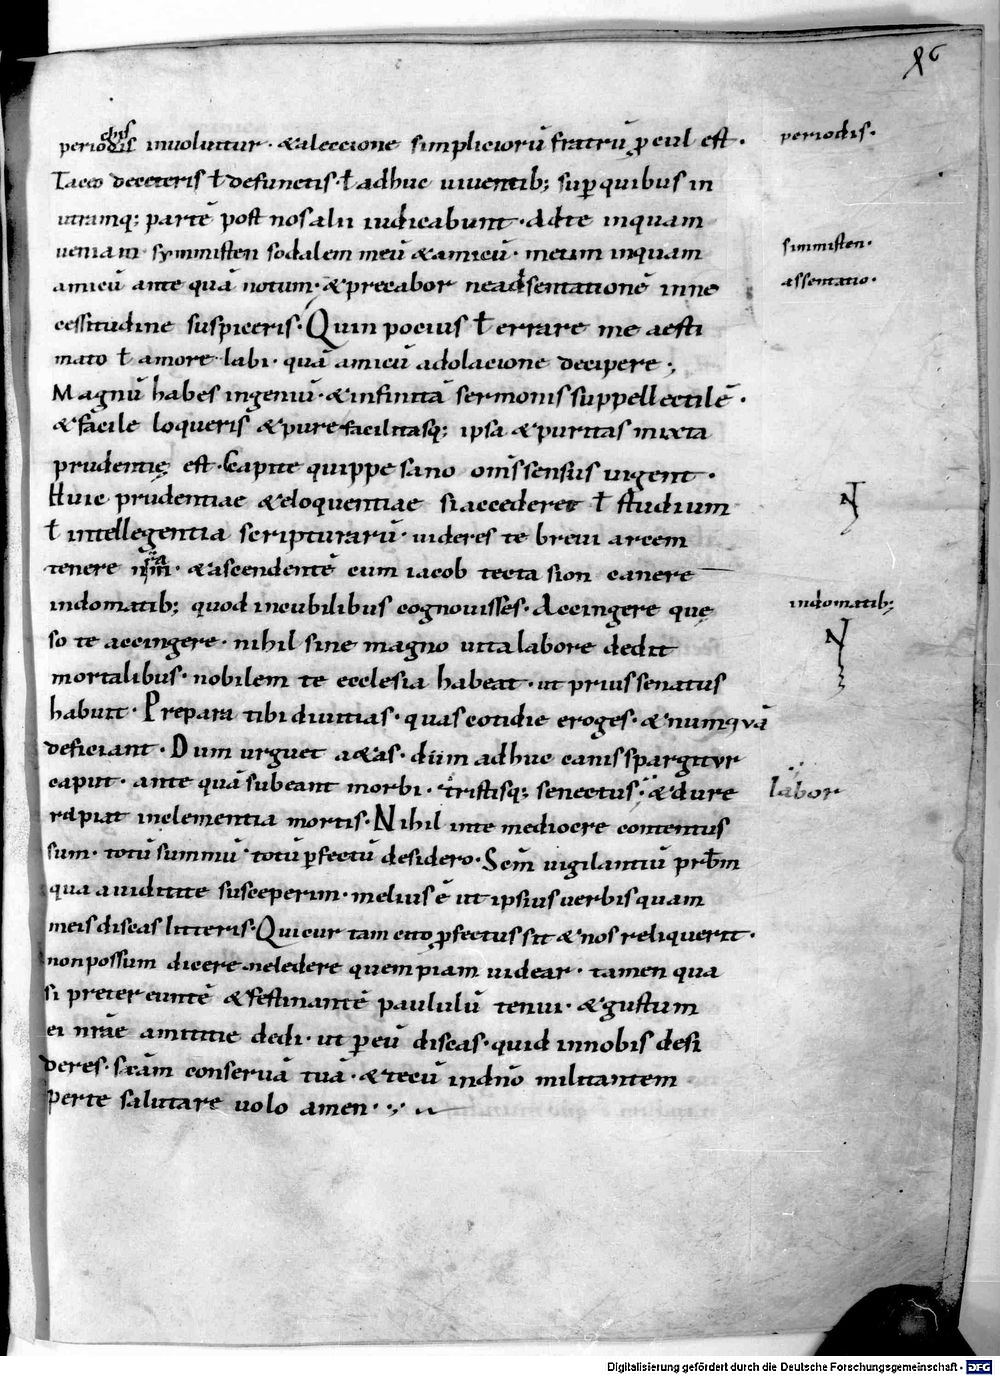 96
periodis involuitur · & a leccione simplicioru̅ fratru̅ ꝓcul est · periodis·
chis
Taceo deceteris ł defunctis · ł adhuc uiuentib; sup̱ quibus in
utramq; parte̅ post nos alii iudicabunt · Ad te inquam
ueniam symmisten sodalem meu̅ & amicu̅ · meum inquam simmisten·
amicu̅ ante qua̅ notum · & precabor ne adsentatione̅ in ne assentatio·
cessitudine suspiceris · Quin pocius ł errare me aesti
mato ł amore labi · qua̅ amicu̅ adolacione decipere ·,
Magnu̅ habes ingeniu̅ · & infinita̅ sermonis suppellectile̅ ·
& facile loqueris & pure facilitasq; ipsa & puritas mixta
prudentię est · Capite quippe sano om̅s sensus uigent ·
Huic prudentiae & eloquentiae si accederet ł studium
ł intellegentia scripturaru̅ · uideres te breui arcem
tenere nr̅m · & ascendente̅ cum iacob tecta sion canere
in domatib; quod in cubilibus cognouisses · Accingere quę indomatib;
so te accingere · nihil sine magno uita labore dedit
mortalibus · nobilem te ecclesia habeat · ut prius senatus
habuit · Prepara tibi diuitias · quas cotidie eroges · & numqua̅
deficiant · Dum urguet a&as · dum adhuc canis spargitur
caput · ante qua̅ subeant morbi · tristisq; senectus · & dure labor
rapiat inclementia mortis · Nihil in te mediocre contentus
sum · totu̅ summu̅ · totu̅ p̱fectu̅ desidero · Scm̅ uigilantiu̅ prb̅m
qua auiditate susceperim · melius e̅ ut ipsius uerbis quam
meis discas litteris · Qui cur tam cito ꝓfectus sit & nos reliquerit ·
non possum dicere ne ledere quempiam uidear · tamen qua
si pretereunte̅ & festinante̅ paululu̅ tenui · & gustum
ei nr̅ae amititie dedi · ut p̱ eu̅ discas · quid in nobis desi
deres · sc̅am conserua̅ tua̅ · & tecu̅ in dn̅o militantem
per te salutare uolo amen ·
Digitalisierung gefördert durch die Deutsche Forschungsgemeinschaft · DFG